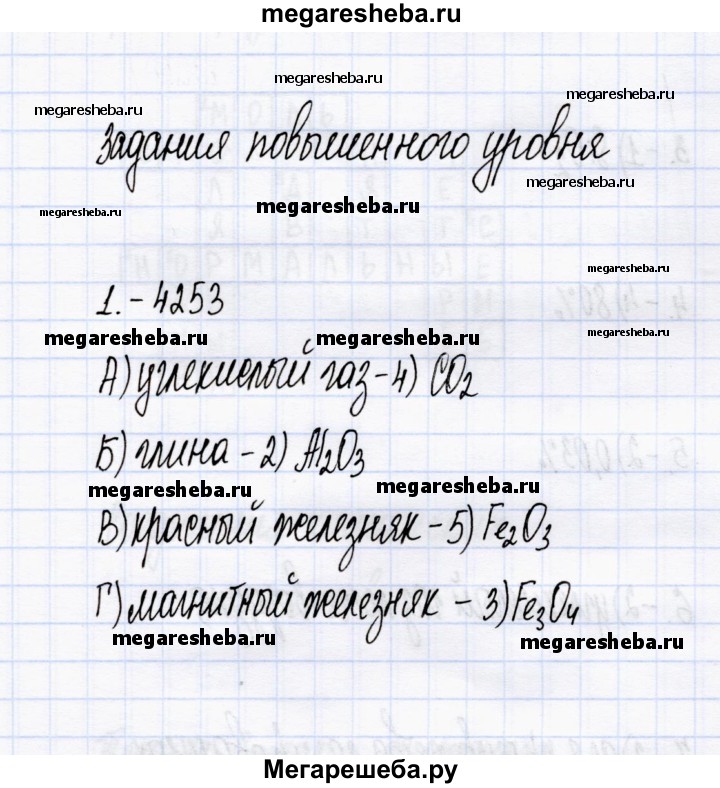 megaresheba.ru
megaresheba.ru
megaresheba.ru
megaresheba.ru
Задания повышенного уровня
megaresheba.ru
megaresheba.ru
megaresheba.ru
megaresheba.ru
1. - 4253
megaresheba.ru
megaresheba.ru
megaresheba.ru
А) углекислый газ - 4) CO₂
Б) глина - 2) Al₂O₃
megaresheba.ru
megaresheba.ru
В) красный железняк - 5) Fe₂O₃
Г) магнитный железняк - 3) Fe₃O₄
megaresheba.ru
megaresheba.ru
Мегарешеба.ру